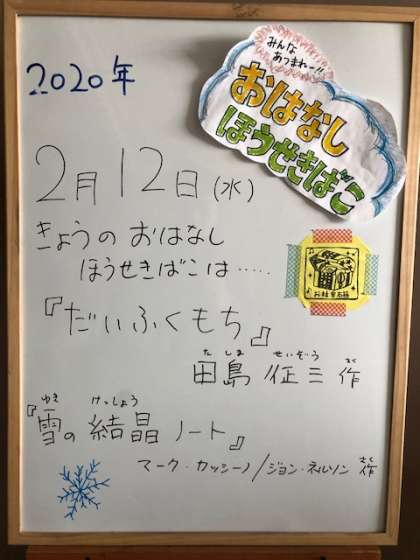 2020年
みんな
あつまれー!!
おはなし
ほうせきばこ
2月12日(水)
きょうの おはなし
ほうせきばこは・・・・・
『だいふくもち』
たしま せいぞう さく
田島 征三 作
ゆき けっしょう
『雪の結晶ノート』
さく
マーク・カッシーノ/ジョン・ネルソン 作